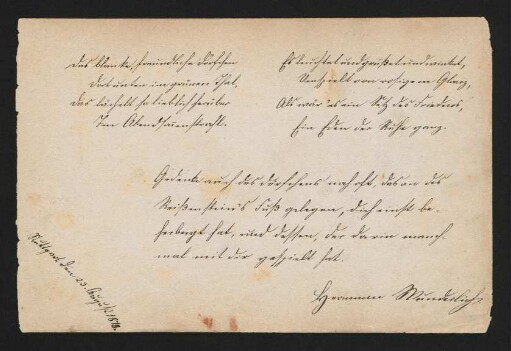 Das blanke, freundliche Dörfchen
Dort unten im grünen Thal,
Das lächelt so lieblich herüber
Im Abendsonnenstrahl.
Es leuchtet und grüßet und winket,
Umspielt von rosigem Glanz,
Als wär' es ein Sitz des Friedens,
Ein Eden der Ruhe ganz.
Gedenke auch des Dörfchens noch oft, das an des
Reißensteins Fuß gelegen, dich einst be-
herbergt hat, und dessen, der darin manch-
mal mit dir gespielt hat.
Hermann Wunderlich
Stuttgart den 23 August